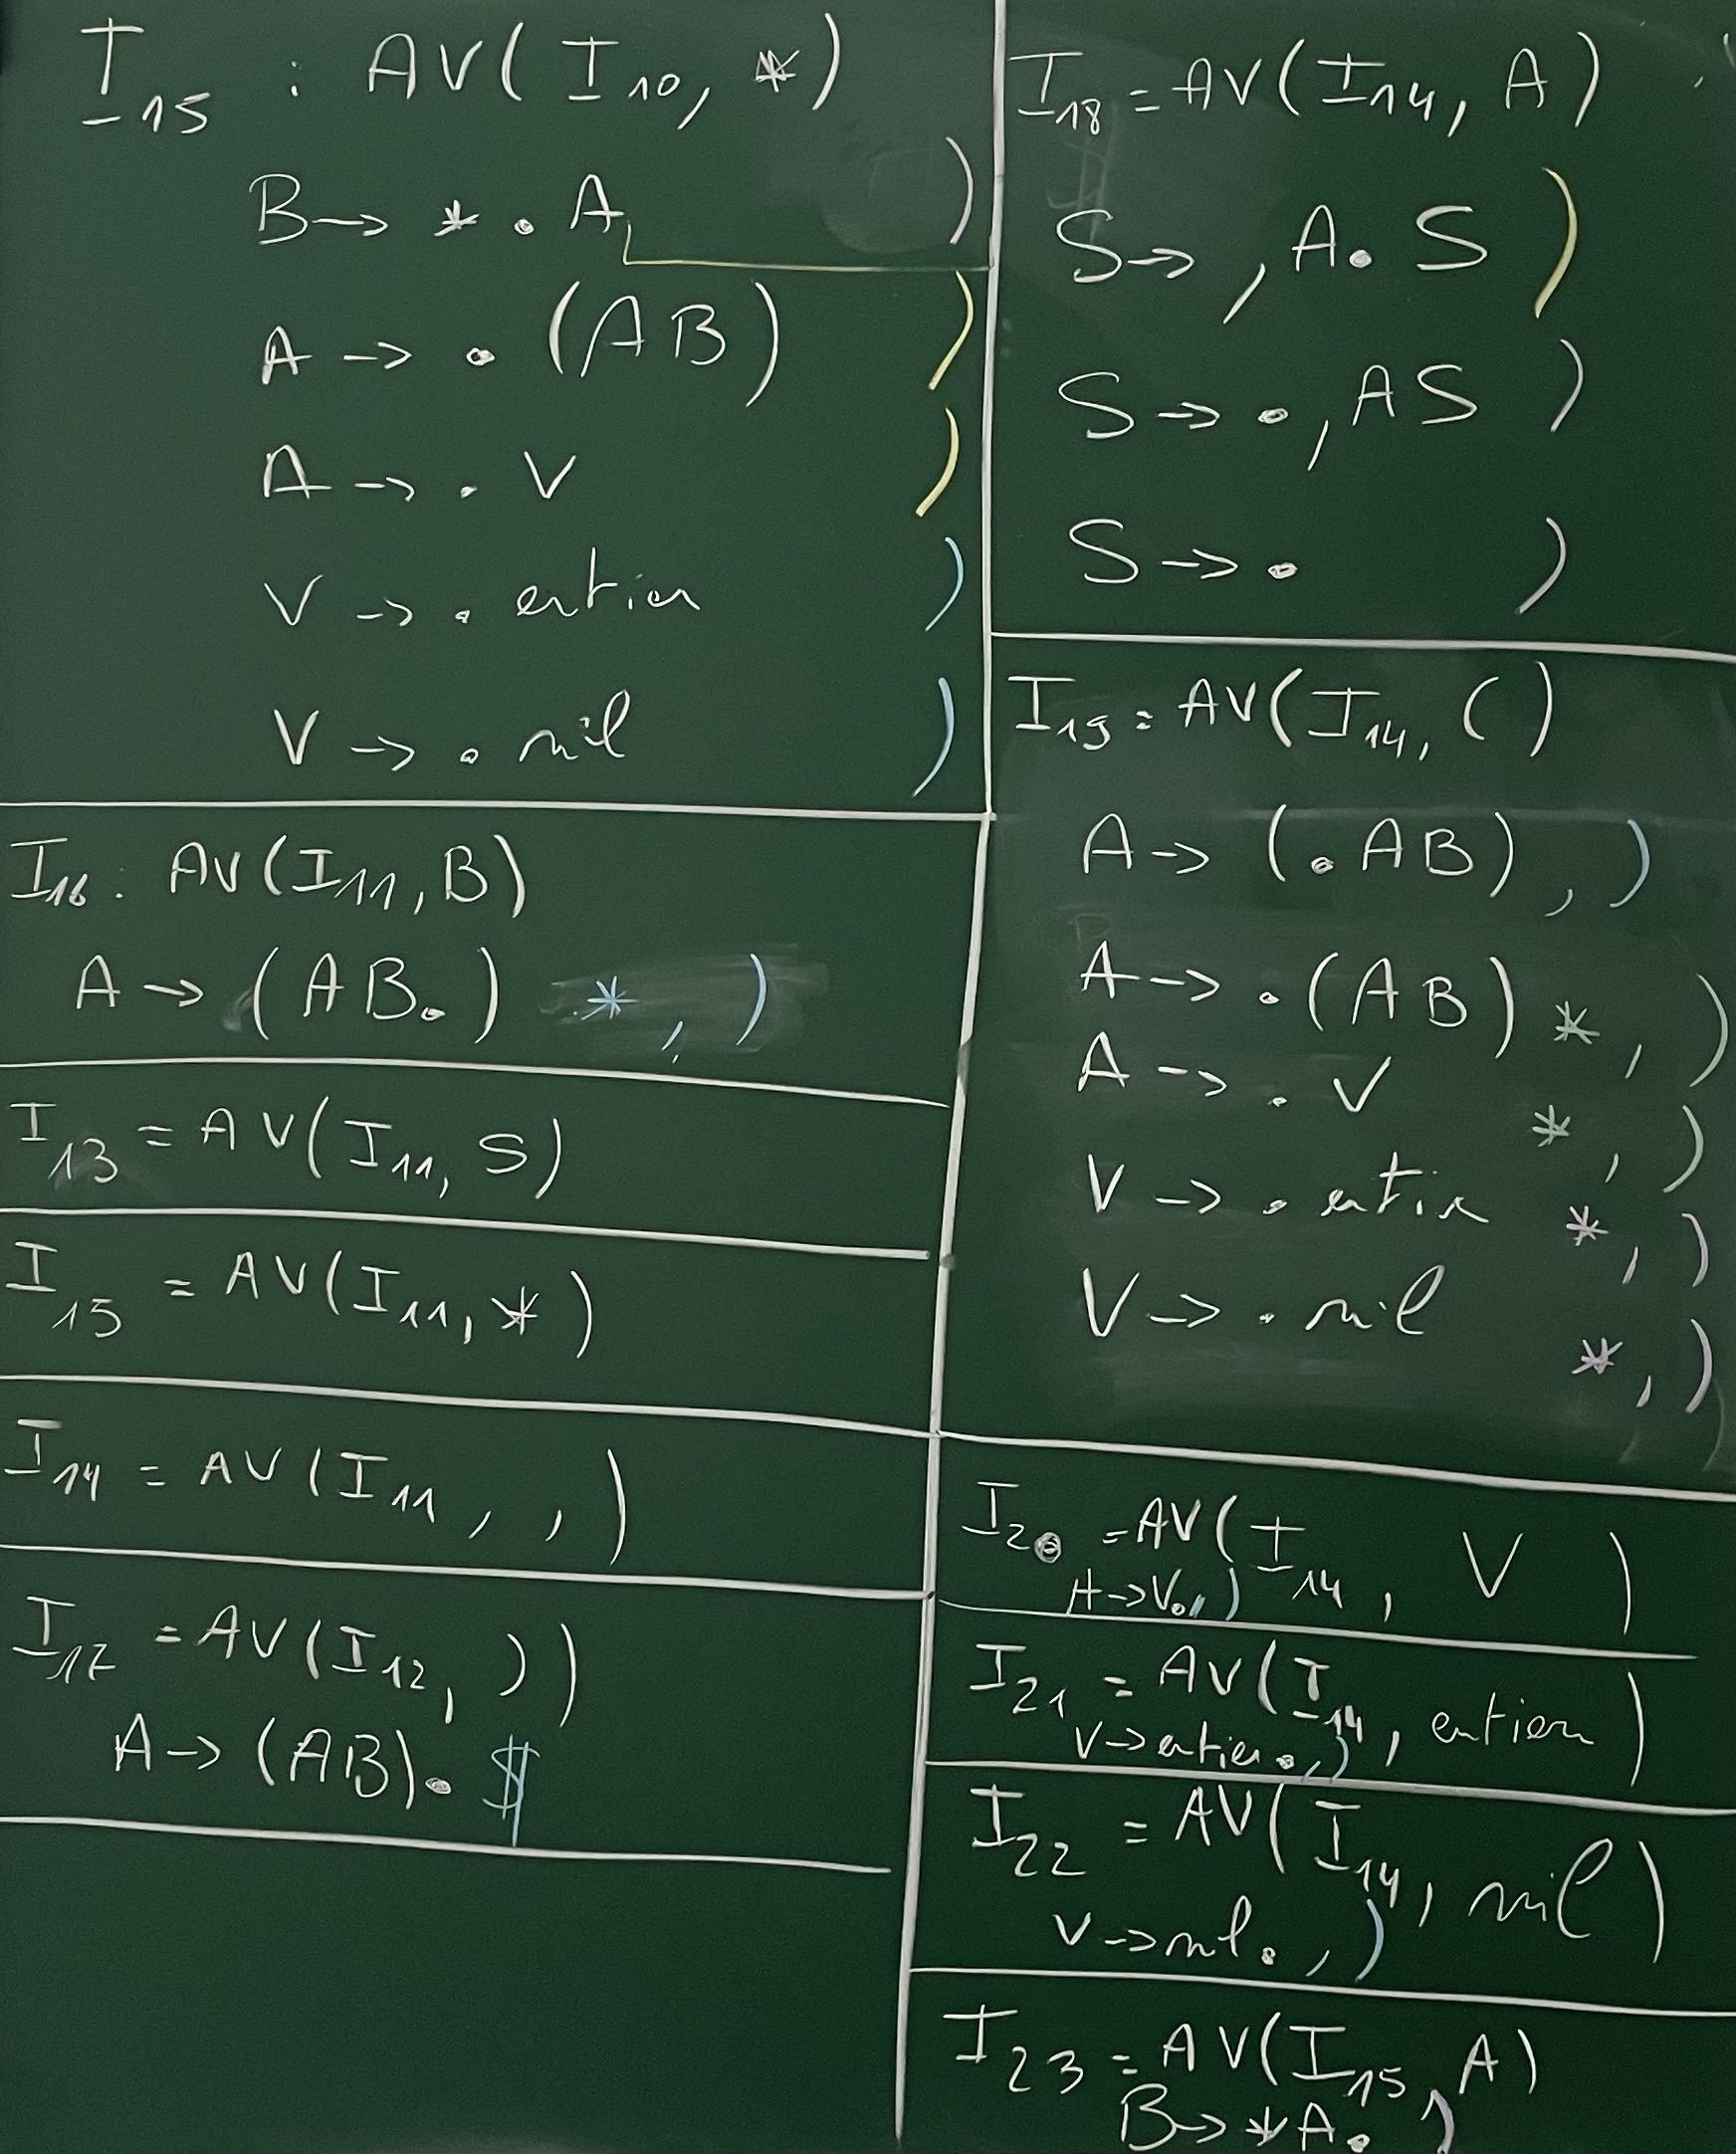 I15 : AV(I10, *)
B → * . A )
A → . (AB) )
A → . V )
V → . entier )
V → . nil )
I16 : AV(I11, B)
A → (AB.) *, )
I13 = AV(I11, S)
I15 = AV(I11, *)
I14 = AV(I11, , )
I17 = AV(I12, ))
A → (AB). $
I18 = AV(I14, A)
S → , A . S )
S → . , AS )
S → . )
I19 = AV(I14, ()
A → (. AB) , )
A → . (AB) * , )
A → . V * , )
V → . entier * , )
V → . nil * , )
I20 = AV(I14, V )
A → V. , )
I21 = AV(I14, entier)
V → entier . , )
I22 = AV(I14, nil)
V → nil . , )
I23 = AV(I15, A)
B → * A . )